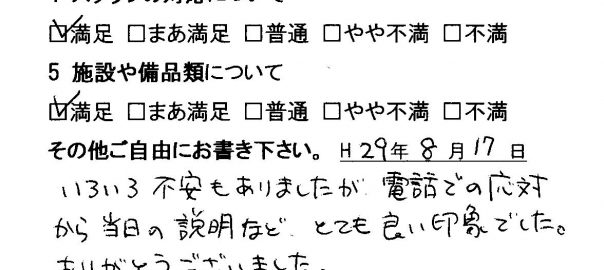 ☑満足 □まあ満足 □普通 □やや不満 □不満
5 施設や備品類について
☑満足 □まあ満足 □普通 □やや不満 □不満
その他ご自由にお書き下さい。 H29年 8月17日
いろいろ不安もありましたが、電話での応対
から当日の説明など、とても良い印象でした。
ありがとうございました。